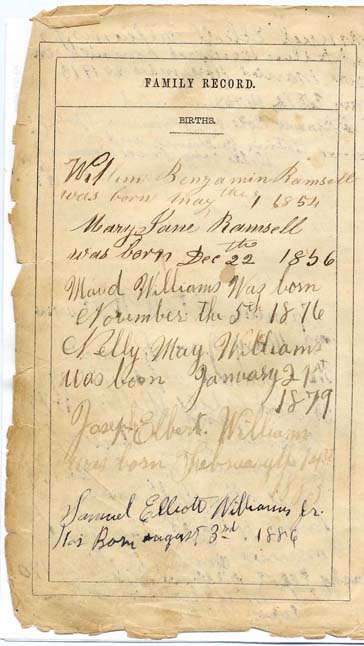 FAMILY RECORD.
BIRTHS.
William Benjamin Ramsell
was born May the 1 1854
Mary Jane Ramsell
was born Dec 22 the 1856
Maud Williams Was born
November the 5th 1876
Nelly May Williams
was born January 21st
1879
Joseph Elbert Williams
was born February the 14th
Samuel Elliott Williams Jr.
Was Born August 3rd 1886